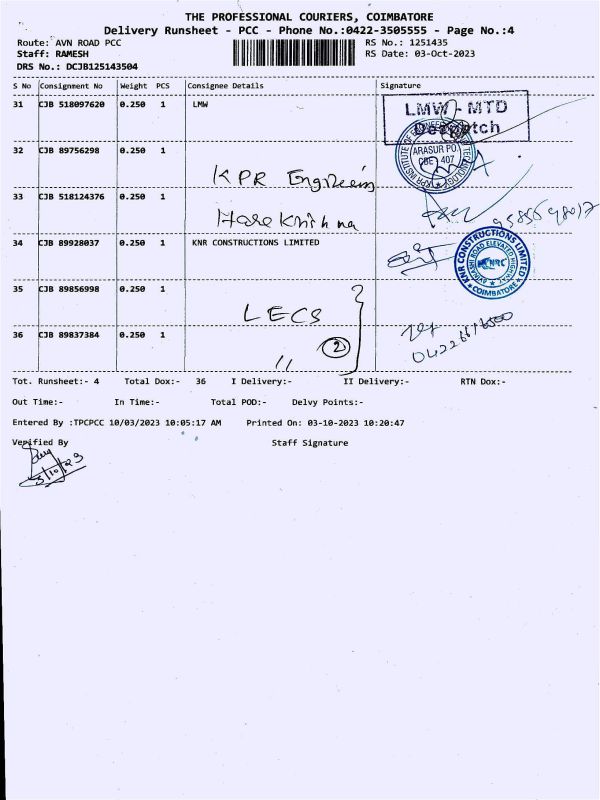 THE PROFESSIONAL COURIERS, COIMBATORE
Delivery Runsheet - PCC - Phone No.:0422-3505555 - Page No.:4
Route: AVN ROAD PCC
RS No.: 1251435
Staff: RAMESH
RS Date: 03-Oct-2023
DRS No.: DCJB125143504
S No Consignment No Weight PCS Consignee Details Signature
31 CJB 518097620 0.250 1 LMW
LMW - MTD
Despatch
32 CJB 89756298 0.250 1
KPR Engineering
KPR INSTITUTE OF ENGINEERING TECHNOLOGY
ARASUR PO.
CBE 407
33 CJB 518124376 0.250 1
Hare Krishna
34 CJB 89928037 0.250 1 KNR CONSTRUCTIONS LIMITED
KNR CONSTRUCTIONS LIMITED
AVINASHI ROAD ELEVATED HIGHWAY
KNRC
COIMBATORE
35 CJB 89856998 0.250 1
LECS
36 CJB 89837384 0.250 1
"
2
04226616500
Tot. Runsheet:- 4 Total Dox:- 36 I Delivery:- II Delivery:- RTN Dox:-
Out Time:- In Time:- Total POD:- Delvy Points:-
Entered By :TPCPCC 10/03/2023 10:05:17 AM Printed On: 03-10-2023 10:20:47
Verified By Staff Signature
3/10/23